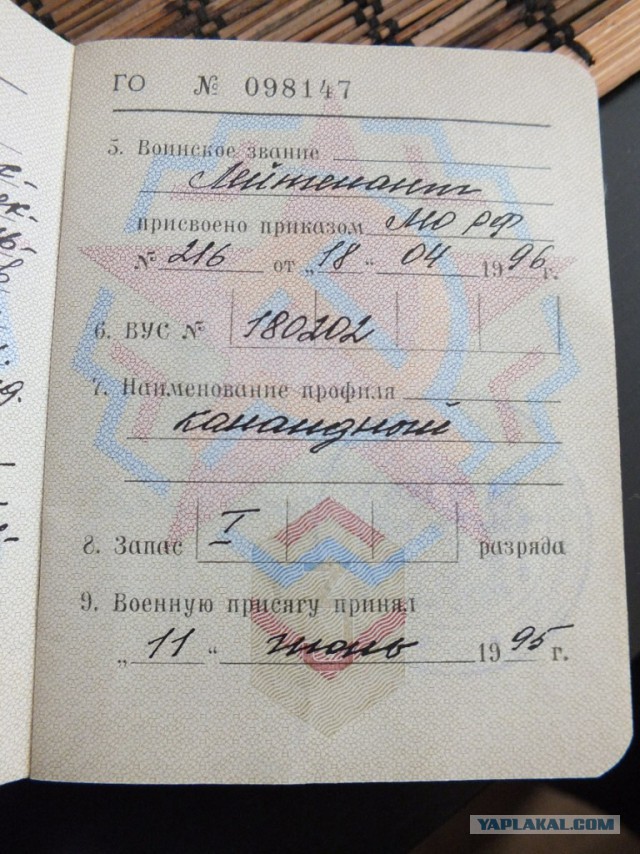 ГО № 098147
5. Воинское звание
Лейтенант
присвоено приказом МО РФ
№ 216 от „18“ 04 1996 г.
6. ВУС № 180202
7. Наименование профиля
командный
8. Запас I разряда
9. Военную присягу принял
„11“ июнь 1995 г.
YAPLAKAL.COM